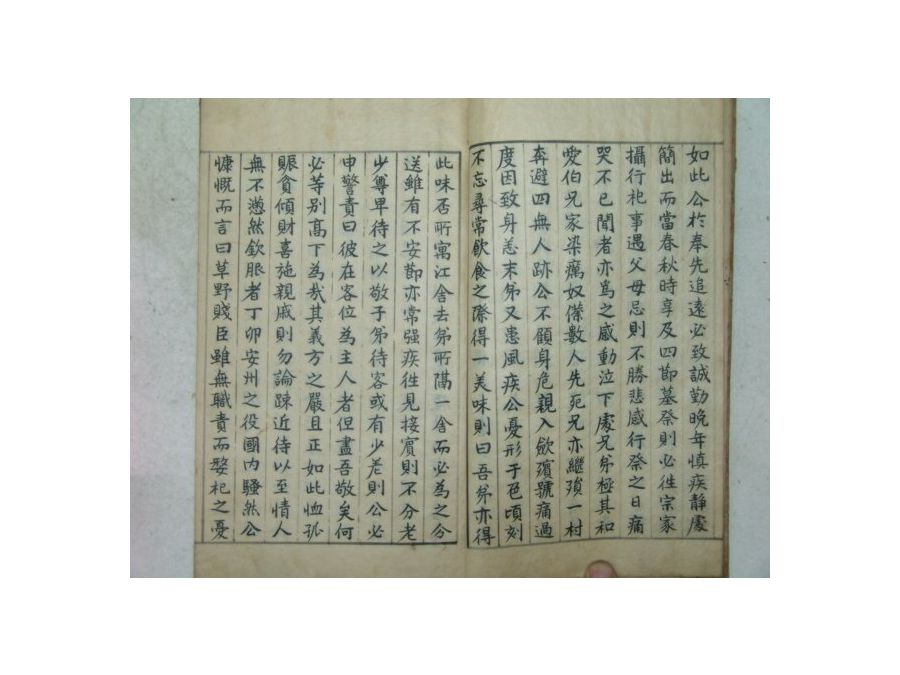 如此公於奉先追遠必致誠勤晩年慎疾静處
簡出而當春秋時享及四節墓祭則必徃宗家
攝行祀事遇父母忌則不勝悲感行祭之日痛
哭不已聞者亦爲之感動泣下處兄弟極其和
愛伯兄家染癘奴僕數人先死兄亦繼殞一村
奔避四無人跡公不顧身危親入歛殯號痛過
度因致身恙末弟又患風疾公憂形于色頃刻
不忘尋常飮食之際得一美味則曰吾弟亦得
此味否所寓江舍去弟所隔一舍而必為之分
送雖有不安節亦常强疾徃見接賓則不分老
少尊卑待之以敬子弟待客或有少差則公必
申警責曰彼在客位為主人者但盡吾敬矣何
必等别高下為㦲其義方之嚴且正如此恤孤
賑貧傾財喜施親戚則勿論踈近待以至情人
無不懣然欽服者丁卯安州之役國内騷然公
慷慨而言曰草野賤臣雖無職責而嫠杞之憂